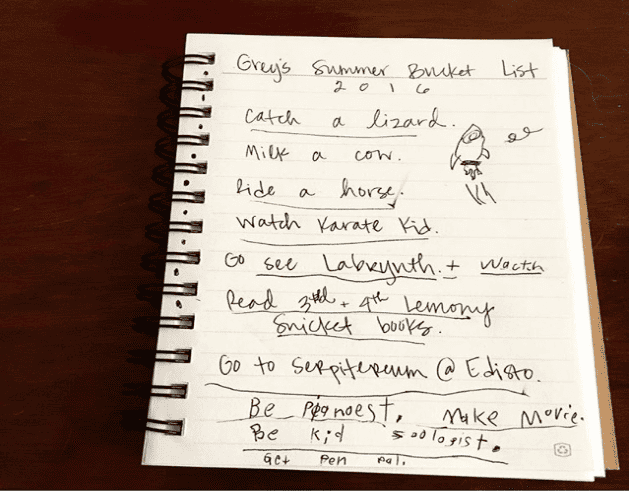 Grey's Summer Bucket List
2016
Catch a lizard.
Milk a cow.
Ride a horse.
Watch Karate Kid.
Go see Labrynth. + Wactch
Read 3rd + 4th Lemony
Snicket books.
Go to Serpitereum @ Edisto.
Be pignoest. Make Movie.
Be kid soologist.
Get Pen Pal.